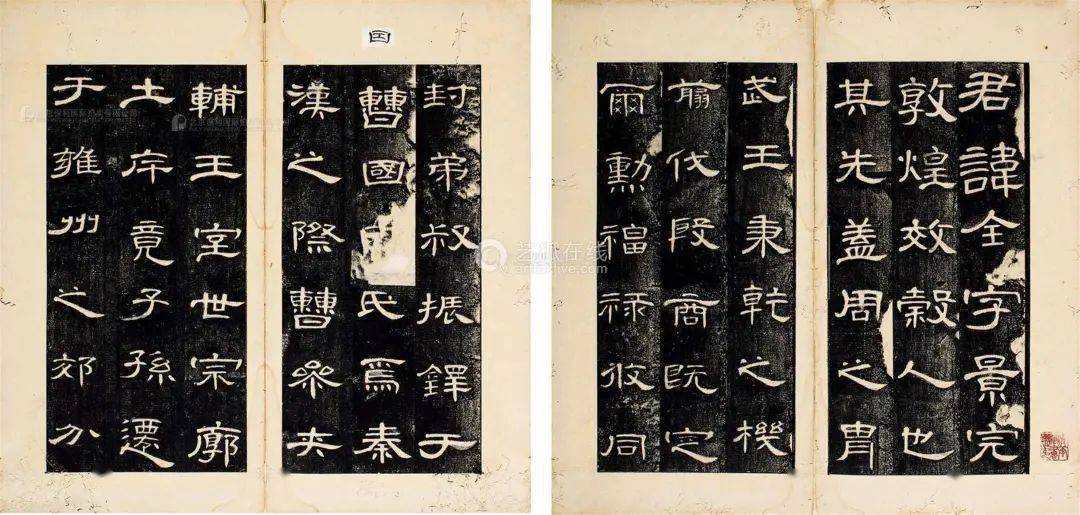 君諱全字景完
敦煌效穀人也
其先蓋周之胄
武王秉乾之機
翦伐殷商既定
爾勳福祿攸同
封弟叔振鐸于
曹國氏焉秦
漢之際曹參夾
輔王室世宗廓
土斥竟子孫遷
于雍州之郊分
艺狐在线
artfoxlive.com